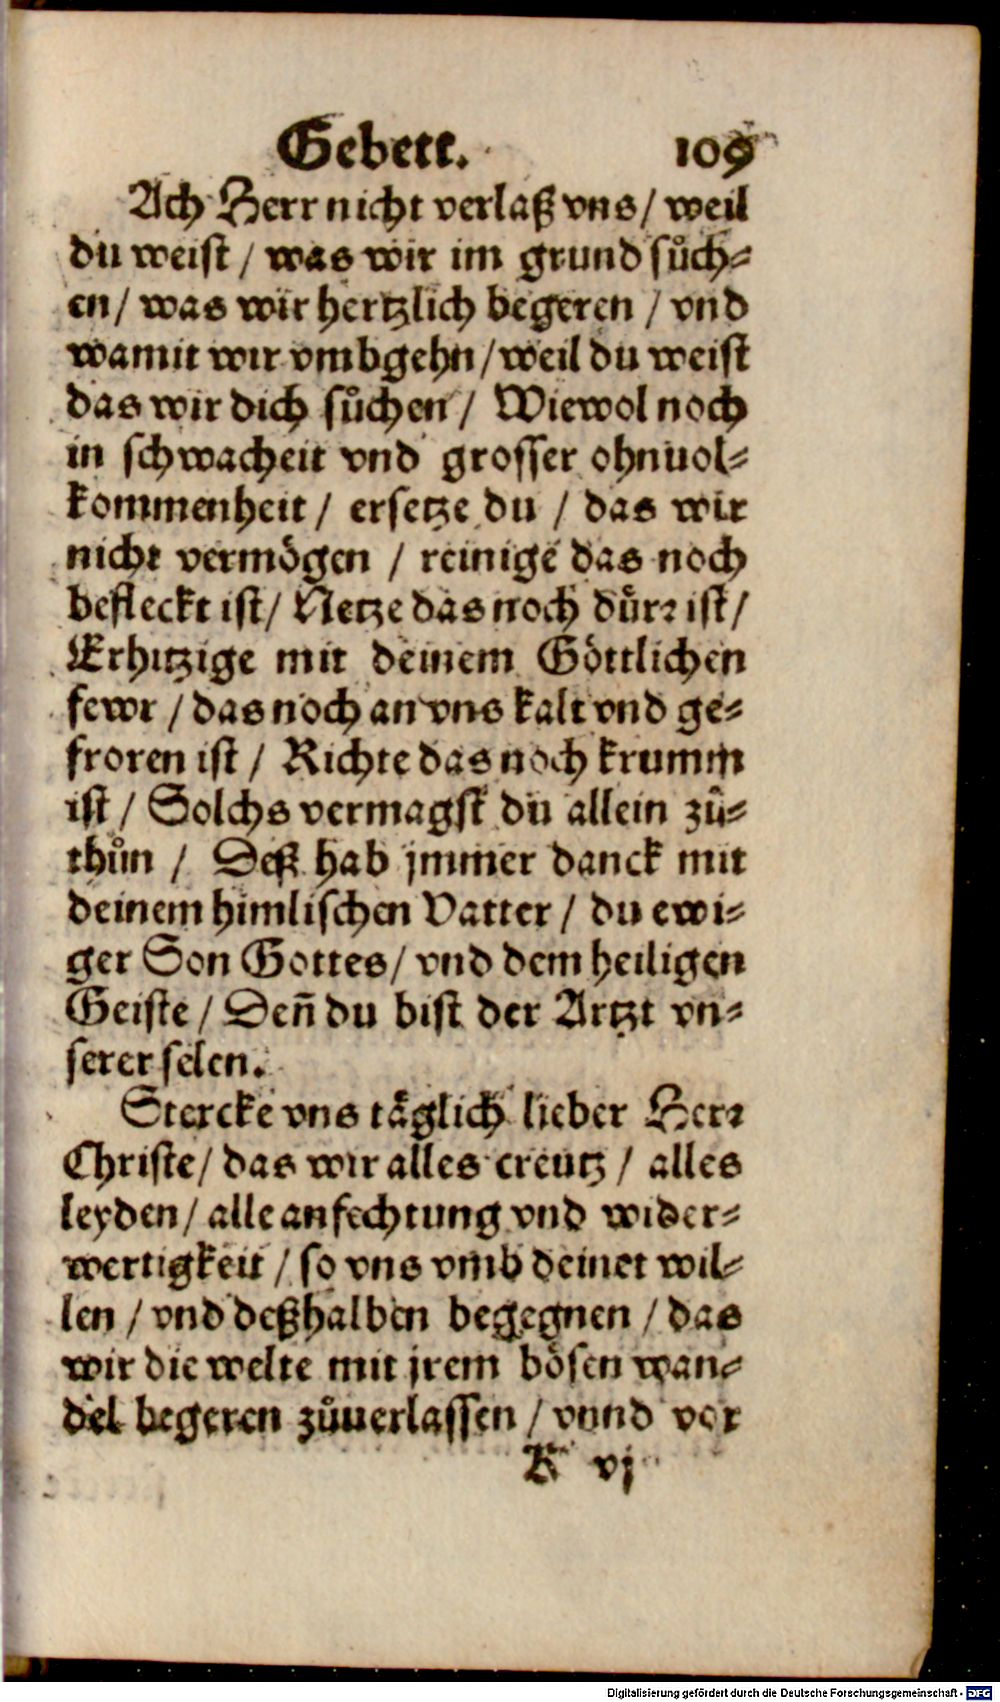 Gebett. 109
Ach Herr nicht verlaß vns / weil
du weist / was wir im grund sůch⸗
en / was wir hertzlich begeren / vnd
wamit wir vmbgehn / weil du weist
das wir dich sůchen / Wiewol noch
in schwacheit vnd grosser ohnuol⸗
kommenheit / ersetze du / das wir
nicht vermögen / reinige das noch
befleckt ist / Netze das noch dürr ist /
Erhitzige mit deinem Göttlichen
fewr / das noch an vns kalt vnd ge⸗
froren ist / Richte das noch krumm
ist / Solchs vermagst du allein zů⸗
thůn / Deß hab jmmer danck mit
deinem himlischen Vatter / du ewi⸗
ger Son Gottes / vnd dem heiligen
Geiste / Deñ du bist der Artzt vn⸗
serer selen.
Stercke vns täglich lieber Herr
Christe / das wir alles creutz / alles
leyden / alle anfechtung vnd wider⸗
wertigkeit / so vns vmb deinet wil⸗
len / vnd deßhalben begegnen / das
wir die welte mit jrem bösen wan⸗
del begeren zůuerlassen / vnnd vor
K vj
Digitalisierung gefördert durch die Deutsche Forschungsgemeinschaft - DFG